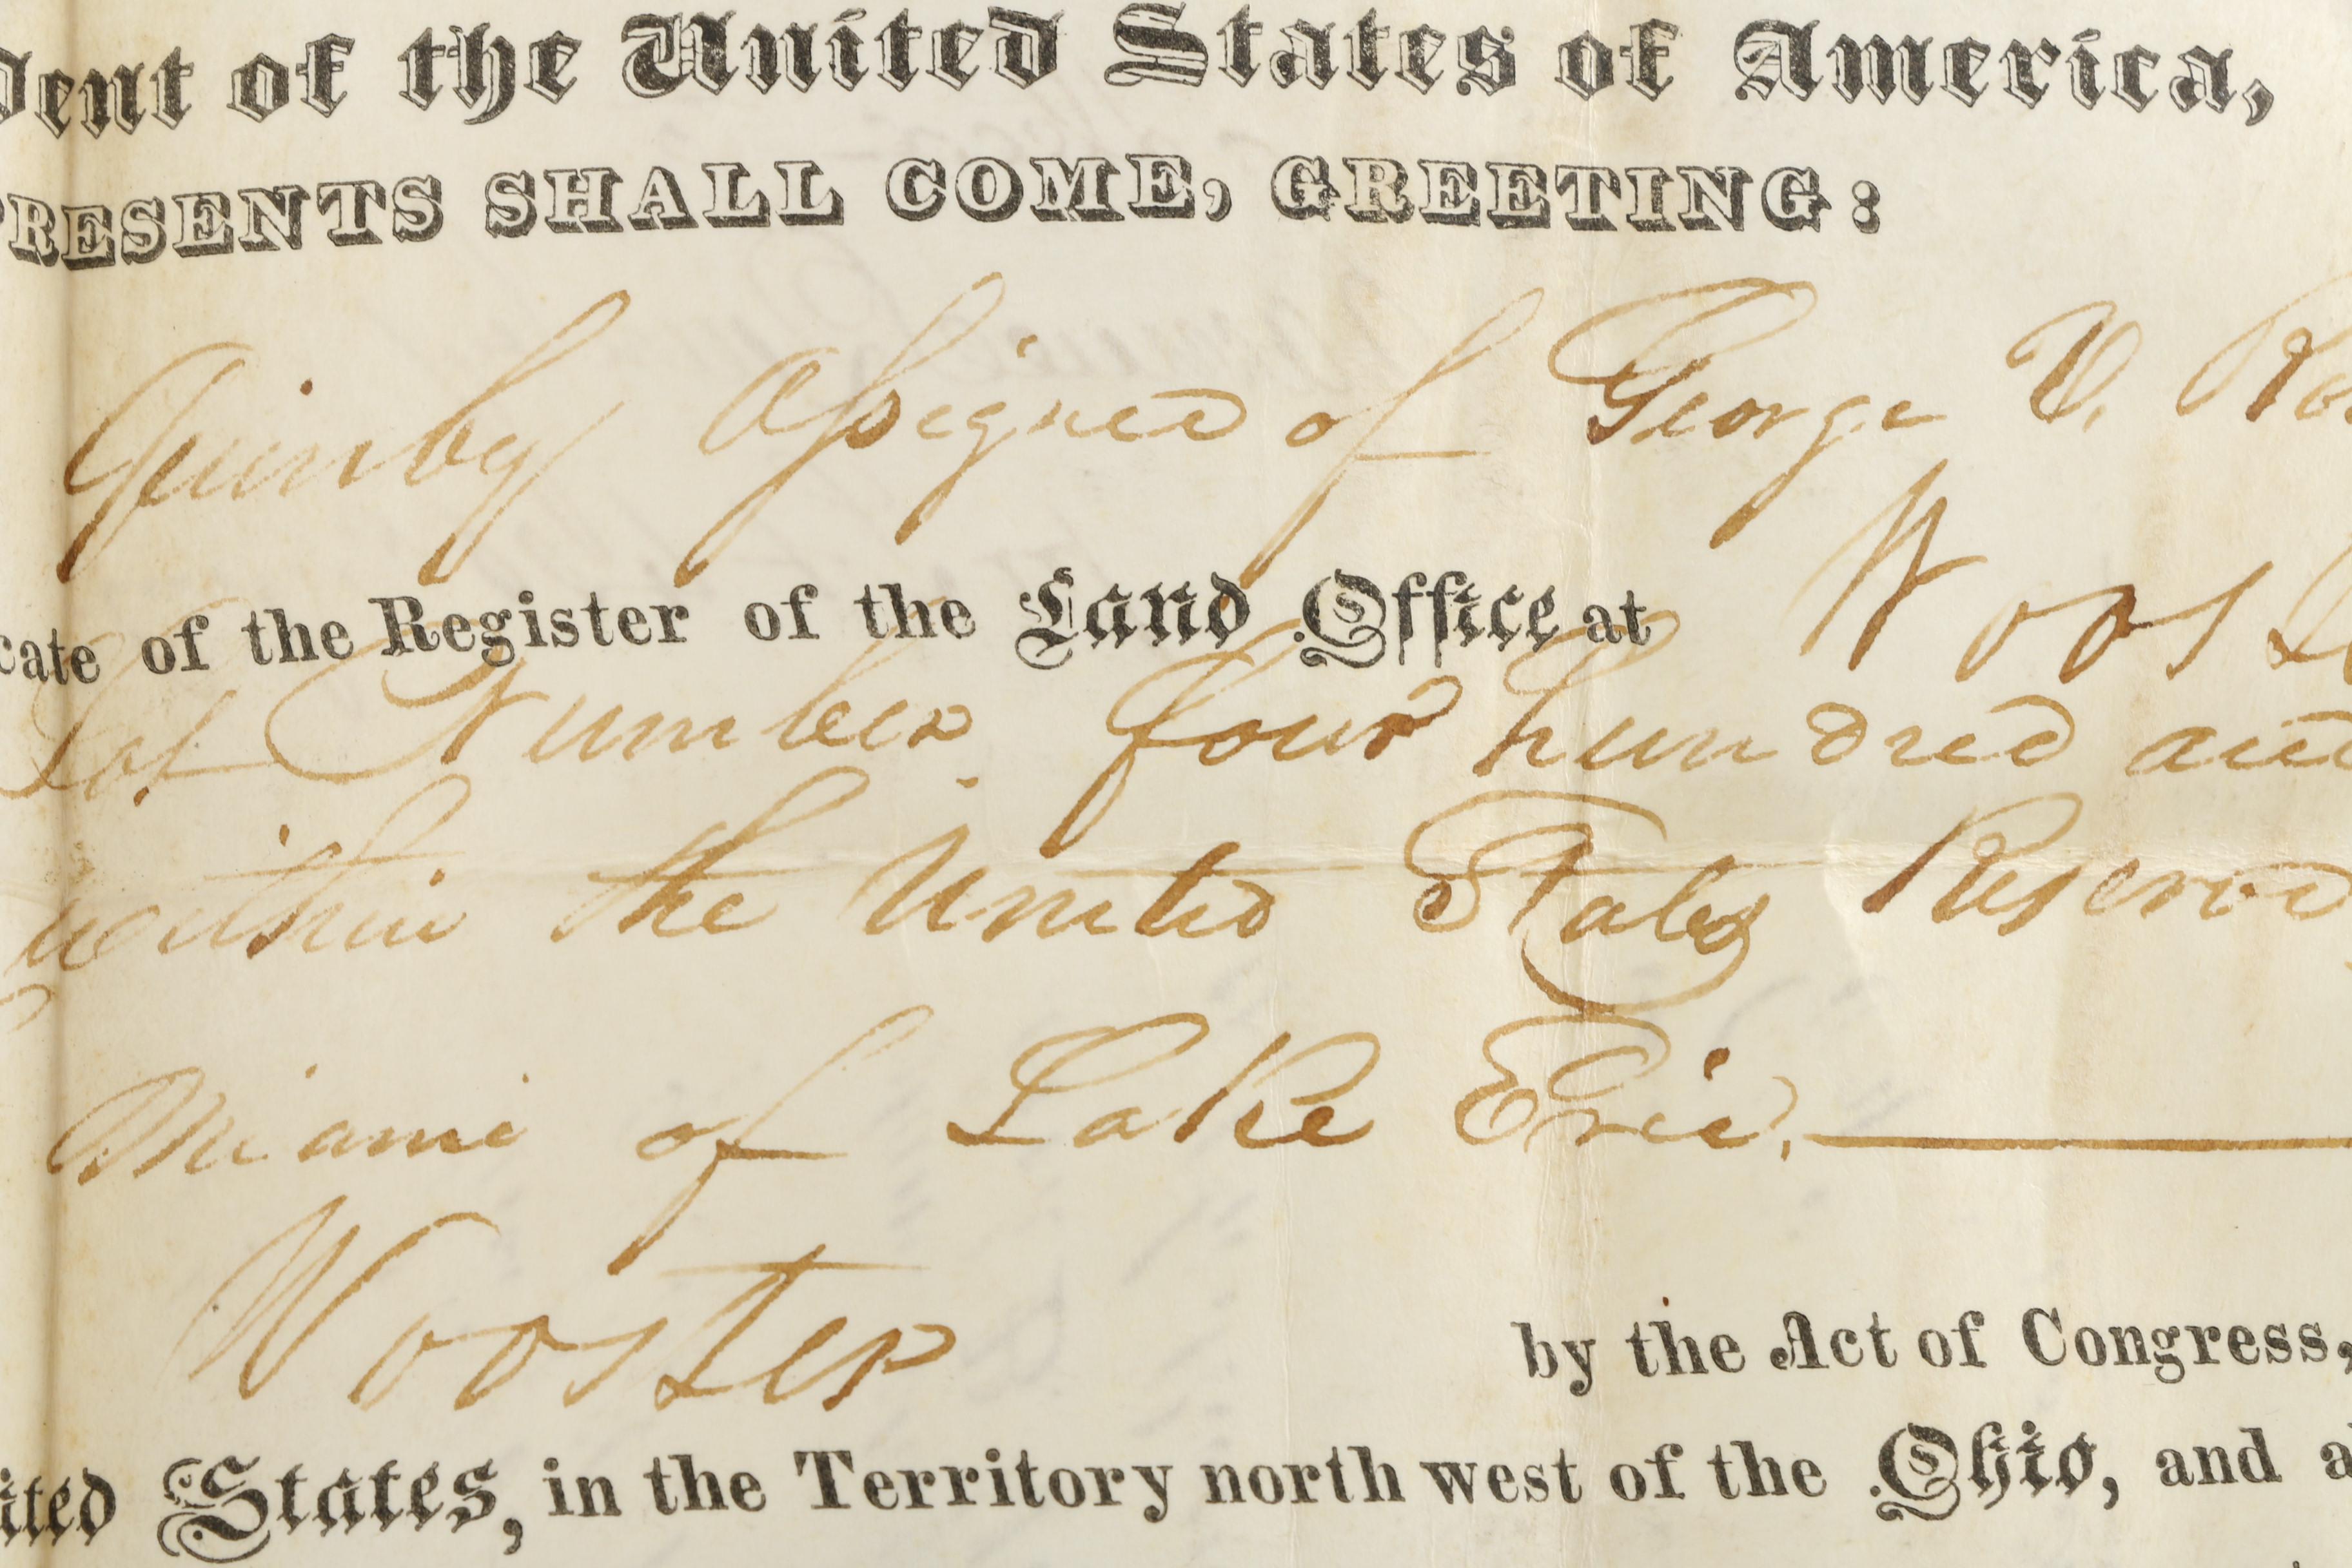 dent of the United States of America,
PRESENTS SHALL COME, GREETING:
Quinby Assignee of George V. Ro
cate of the Register of the Land Office at Woost
Lot Number four hundred and
within the United States Reserve
Miami of Lake Erie.
Wooster by the Act of Congress,
ited States, in the Territory north west of the Ohio, and a